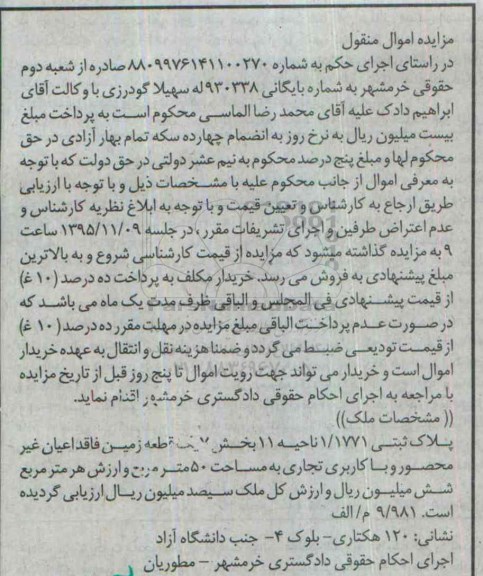 مزایده اموال منقول
در راستای اجرای حکم به شماره ۸۸۰۹۹۷۶۱۴۱۱۰۰۲۷۰ صادره از شعبه دوم
حقوقی خرمشهر به شماره بایگانی ۹۳۰۳۳۸ له سهیلا گودرزی با وکالت آقای
ابراهیم دادک علیه آقای محمد رضا الماسی محکوم است به پرداخت مبلغ
بیست میلیون ریال به نرخ روز به انضمام چهارده سکه تمام بهار آزادی در حق
محکوم لها و مبلغ پنج درصد محکوم به نیم عشر دولتی در حق دولت که با توجه
به معرفی اموال از جانب محکوم علیه با مشخصات ذیل و با توجه با ارزیابی
طریق ارجاع به کارشناس و تعیین قیمت و با توجه به ابلاغ نظریه کارشناس و
عدم اعتراض طرفین و اجرای تشریفات مقرر، در جلسه ۱۳۹۵/۱۱/۰۹ ساعت
۹ به مزایده گذاشته میشود که مزایده از قیمت کارشناسی شروع و به بالاترین
مبلغ پیشنهادی به فروش می رسد. خریدار مکلف به پرداخت ده درصد (۱۰ غ)
از قیمت پیشنهادی فی المجلس و الباقی ظرف مدت یک ماه می باشد که
در صورت عدم پرداخت الباقی مبلغ مزایده در مهلت مقرر ده درصد (۱۰ غ)
از قیمت تودیعی ضبط می گردد و ضمنا هزینه نقل و انتقال به عهده خریدار
اموال است و خریدار می تواند جهت رویت اموال تا پنج روز قبل از تاریخ مزایده
با مراجعه به اجرای احکام حقوقی دادگستری خرمشهر اقدام نماید.
(( مشخصات ملک))
پلاک ثبتی ۱/۱۷۷۱ ناحیه ۱۱ بخش قطعه زمین فاقد اعیان غیر
محصور و با کاربری تجاری به مساحت ۵۰ متر مربع و ارزش هر متر مربع
شش میلیون ریال و ارزش کل ملک سیصد میلیون ریال ارزیابی گردیده
است. ۹/۹۸۱ م/ الف
نشانی: ۱۲۰ هکتاری- بلوک ۴- جنب دانشگاه آزاد
اجرای احکام حقوقی دادگستری خرمشهر - مطوریان